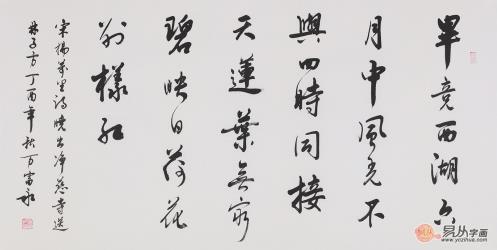 畢竟西湖六
月中風光不
與四時同接
天蓮葉無窮
碧映日荷花
別樣紅
宋楊萬里詩曉出净慈寺送
林子方丁酉年秋万富永
易从字画
www.yczihua.com